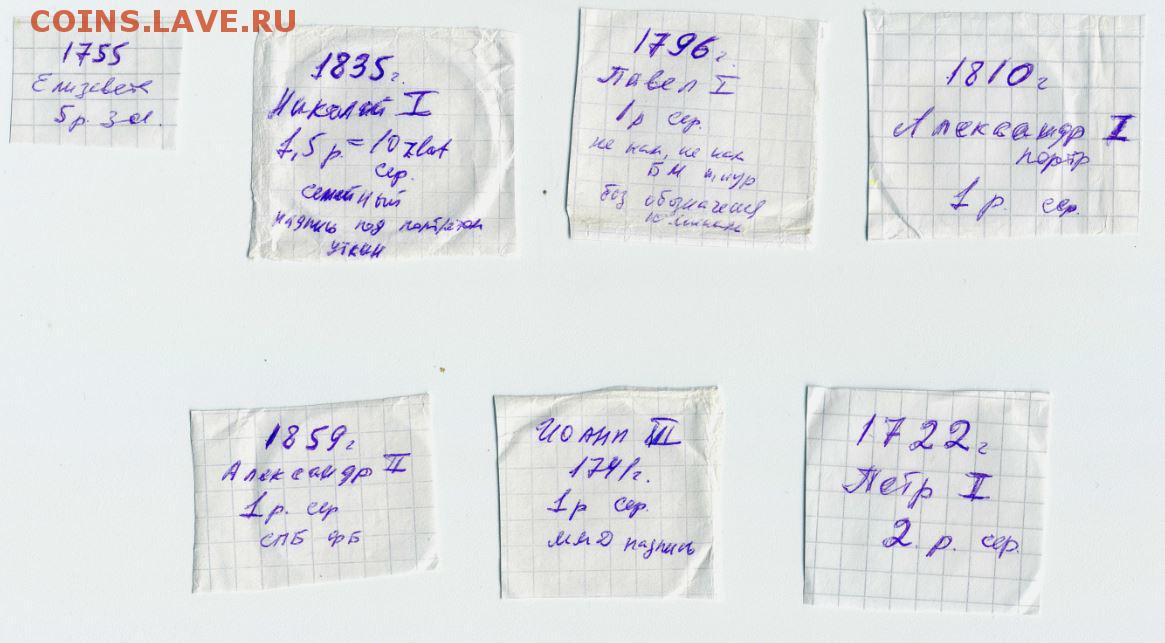 COINS.LAVE.RU
1755
Елизавета
5 р. зол.
1835 г.
Николай I
1,5 р. = 10 zlot
сер.
семейный
надпись под портретом
Уткин
1796 г.
Павел I
1 р сер.
не нам, не нам
БМ
без обозначения
1810 г
Александр I
портр
1 р. сер.
1859 г
Александр II
1 р. сер
СПБ ФБ
Иоанн III
1741 г.
1 р сер.
ММД надпись
1722 г
Петр I
2. р. сер.